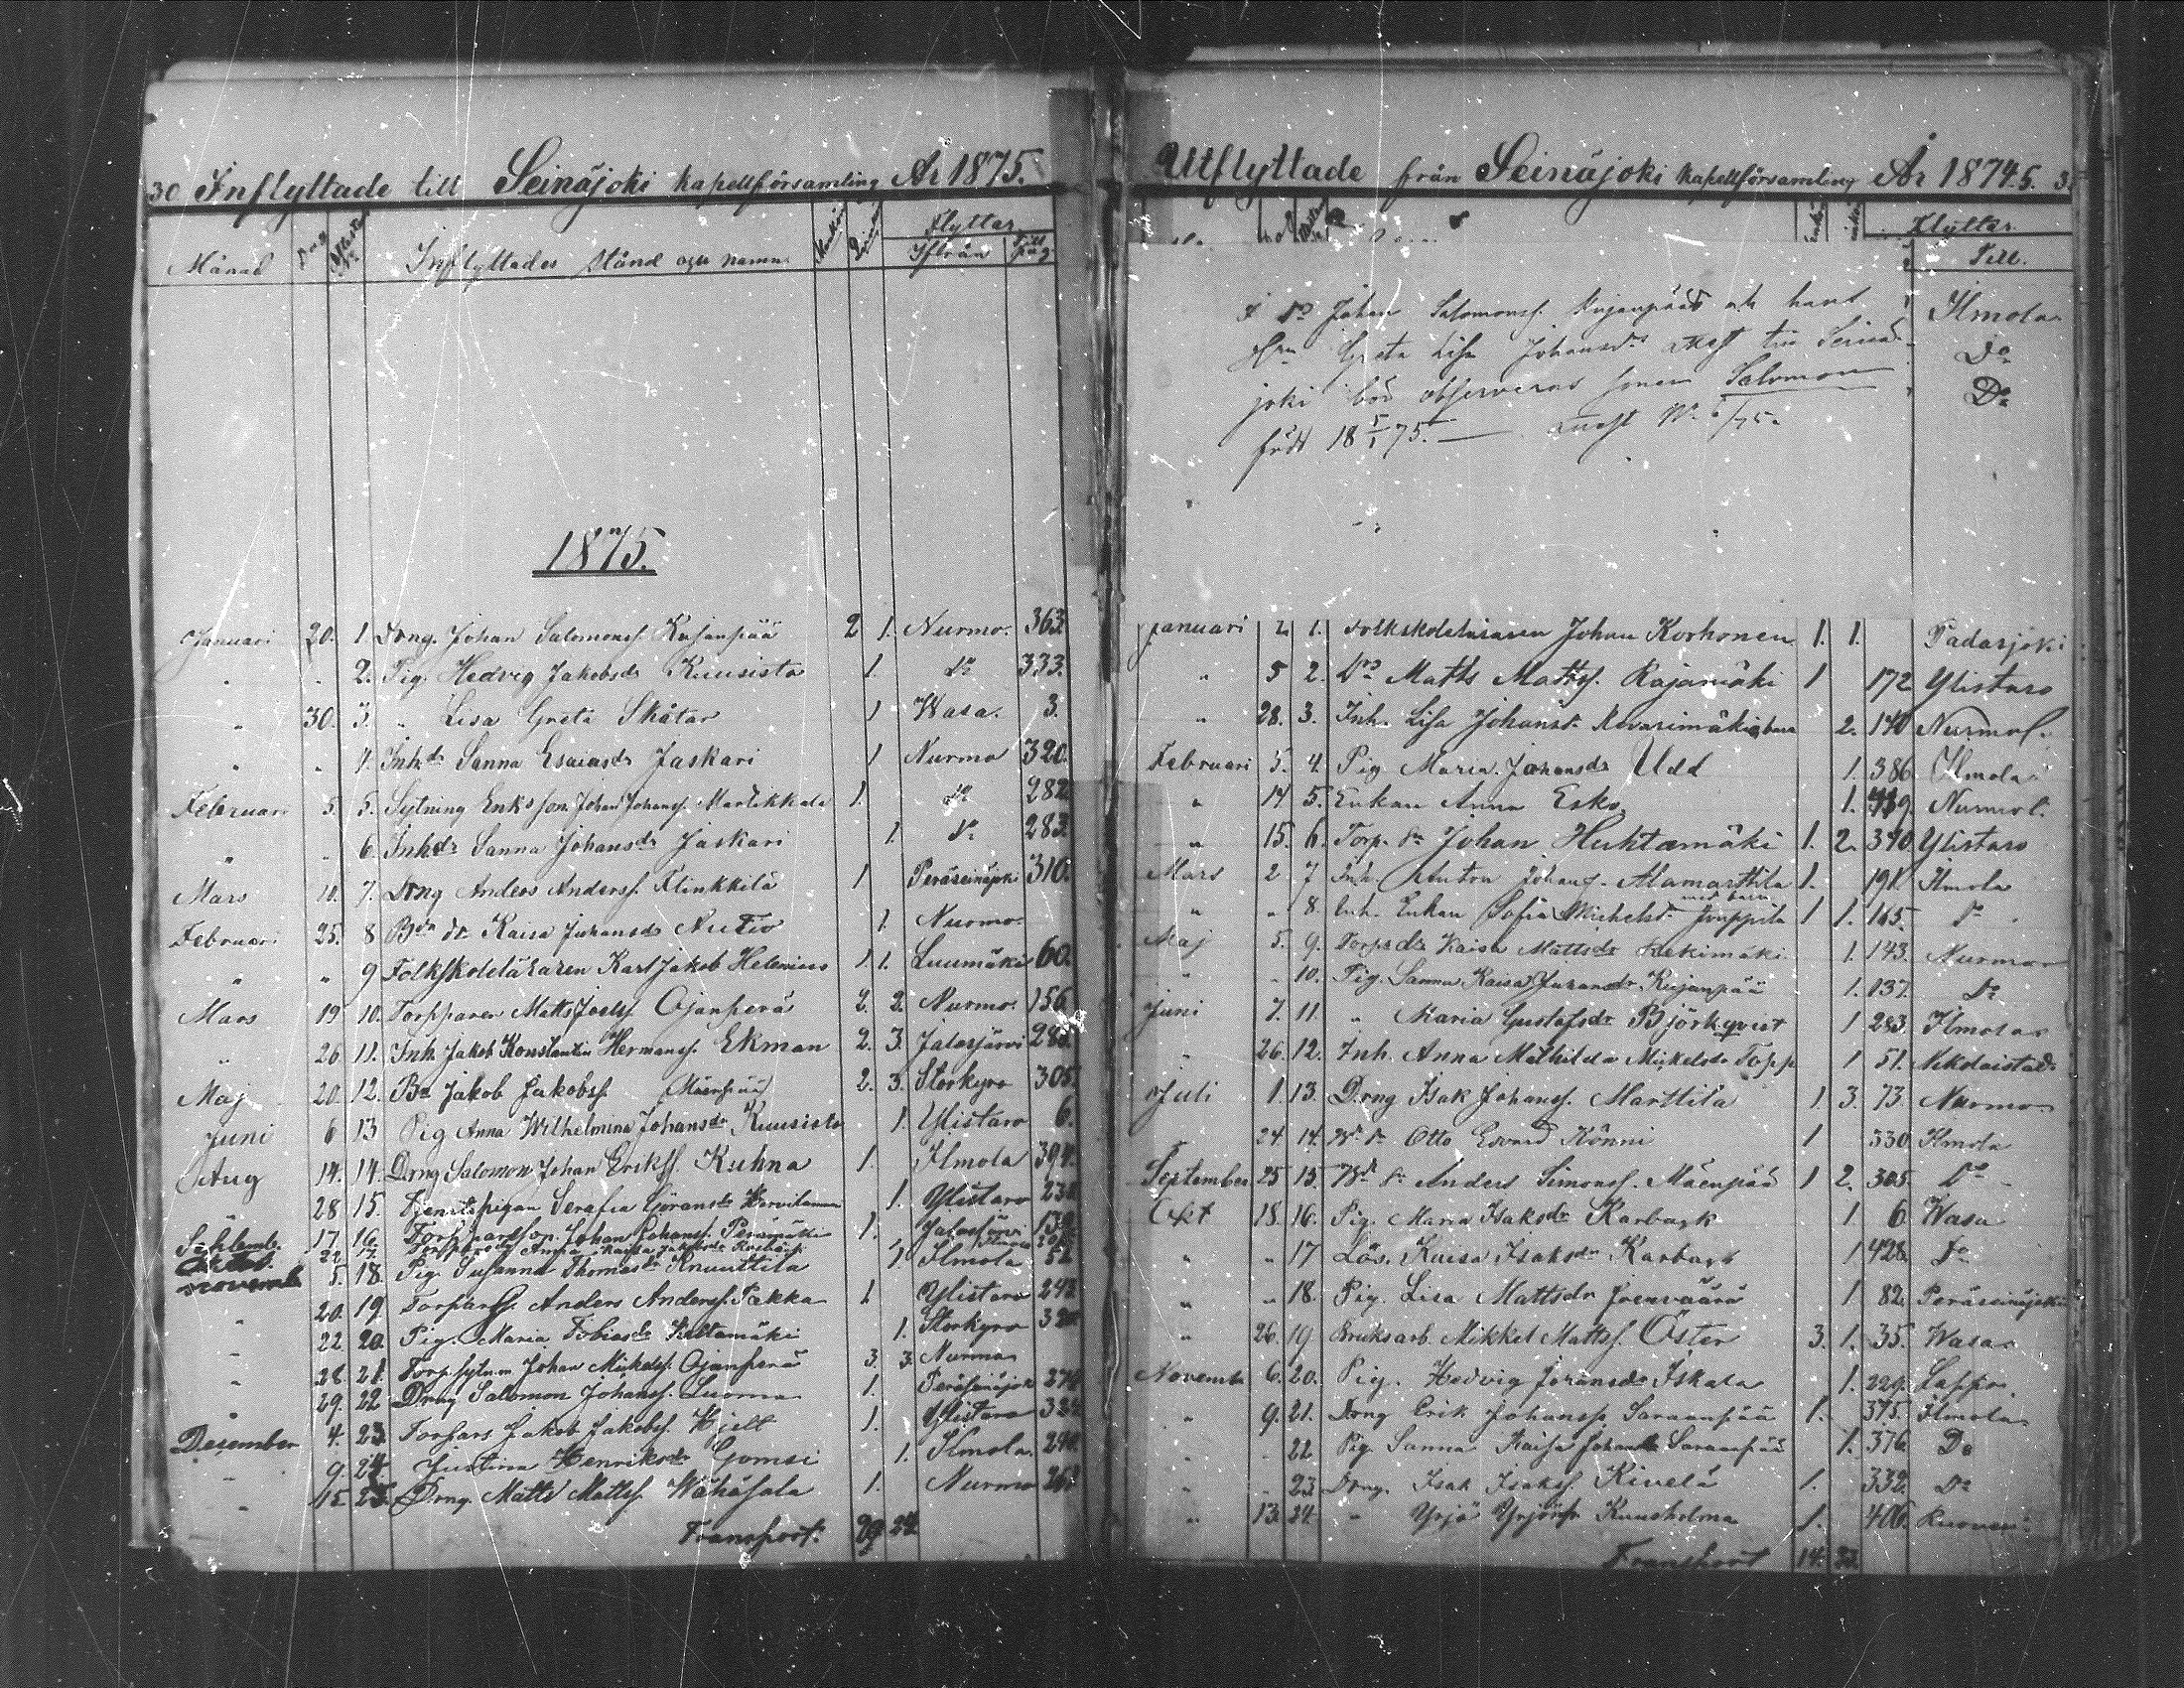 30 Inflyttade till Seinäjoki kapellförsamling År 1875.
Månad Dag Inflyttades stånd och namn. Flyttar
Ifrån Till pag.
1875.
Januari 20. 1. Drng. Johan Salomonss. Kujanpää 2 1. Nurmo. 363.
" " 2. Pig. Hedvig Jakobsdr Kuusisto 1. Do 333.
" 30. 3. " Lisa Greta Skåtar 1 Wasa. 3.
" " 4. Inhdr Sanna Esaiasdr Jaskari 1 Nurmo 320.
Februari 5. 5. Sytning Enks son Johan Johanss. Marttikkala 1. Do 282
" " 6. Inhdr Sanna Johansdr Jaskari 1. Do 283.
Mars 10. 7. Drng Anders Anderss. Klinkkilä 1 Peräseinäjoki 310.
Februari 25. 8 Bdn dr Kaisa Johansdr Autio 1. Nurmo.
" " 9 Folkskoleläraren Karl Jakob Helenius 1. 1. Luumäki 60.
Mars 19 10. Torpparen Matts Joelss. Ojanperä 2. 2. Nurmo. 156
" 26 11. Inh Jakob Konstantin Hermanss. Ekman 2. 3. Jalasjärvi 285.
Maj 20. 12. Bn Jakob Jakobss. Mäenpää 2. 3. Storkyro 305.
Juni 6 13 Pig Anna Wilhelmina Johansdr Kuusisto 1. Ylistaro 6.
Aug 14. 14. Drng Salomon Johan Erikss. Kuhna 1. Ilmola 394.
28 15. Tjenstepigan Serafia Göransdr 1. Ylistaro
17 16. Johan Johanss. Perämäki 1. Jalasjärvi 139
22 17. Anna Kaisa Jakobsdr
November 5. 18. Pig Susanna Thomasdr Knuuttila 1. Ilmola 52
" 20. 19 Anders Anderss. Pakka 1. Ylistaro 243
" 22 20. Pig. Maria Tobiasdr 1. Storkyro
" 28 21. Johan Mickelss. Ojanperä 3. 3. Nurmo
" 29. 22 Drng Salomon Johanss. Luoma 1. Peräseinäjoki
Desember 4. 23 Torpars Jakob Jakobss. Hjelt 1. Ylistaro
" 9. 24. Justina Henriksdr Gomsi 1. Ilmola. 240.
" 15. 25. Drng. Matts Mattss. Wähäsalo 1. Nurmo
Transport. 29 24
Utflyttade från Seinäjoki kapellförsamling År 1874.5.
Flyttar
Till.
Johan Salomonss. Kujanpää och hans Ilmola
Greta Lisa Johansdr till Seinä- Do
joki bör observeras sonen Salomon Do
född 18 5/1 75.
Januari 2 1. Folkskoleläraren Johan Korhonen 1. 1. Padasjoki
" 5 2. Matts Mattss. Rajamäki 1 172 Ylistaro
" 28. 3. Inh. Lisa Johansdr 2. 140 Nurmo
Februari 5. 4. Pig Maria Johansdr Udd 1. 386 Ilmola
" 14 5. Enkan Anna Esko 1. Nurmo
" 15. 6. Torp. sn Johan Huhtamäki 1. 2. 390 Ylistaro
Mars 2 7 Inh. Anton Johanss. Alamarttila 1. 191. Ilmola
" " 8. Inh. Enkan Sofia Michelsdr Jouppila med barn 1 1. 165. Do
Maj 5. 9. Torpsdr Kaisa Mattsdr 1. 143. Nurmo
" " 10. Pig. Sanna Kaisa Kujanpää 1. 137. Do
Juni 7. 11. " Maria Gustafsdr Björkqvist 1 283. Ilmola
" 26. 12. Inh. Anna Mathilda Mickelsdr Topp 1 51. Nikolaistad
Juli 1. 13. Drng Isak Johanss. Marttila 1. 3. 73. Nurmo
24. 14. Otto Edvard Könni 1 330. Ilmola
September 25 15. Anders Simonss. Mäenpää 1 2. 305. Do
Okt 18. 16. Pig. Maria Isaksdr Karbark 1 6 Wasa
" " 17 Lös. Kaisa Isaksdr Karbark 1 428. Do
" " 18. Pig. Lisa Mattsdr Joenväärä 1 82. Peräseinäjoki
" 26. 19 Bruksarb. Mikkel Mattss. Öster 3. 1. 35. Wasa
November 6. 20. Pig. Hedvig Johansdr Iskala 1. 229. Lappo.
" 9. 21. Drng Erik Johanss. Saraanpää 1. 375. Ilmola
" " 22 Pig. Sanna Kaisa Johansdr Saraanpää 1. 376. Do
" " 23 Drng. Isak Isakss. Kivelä 1. 332. Do
" 13. 24. " Yrjö Yrjönp. Kuusholma 1. 406.
Transport 14. 23.